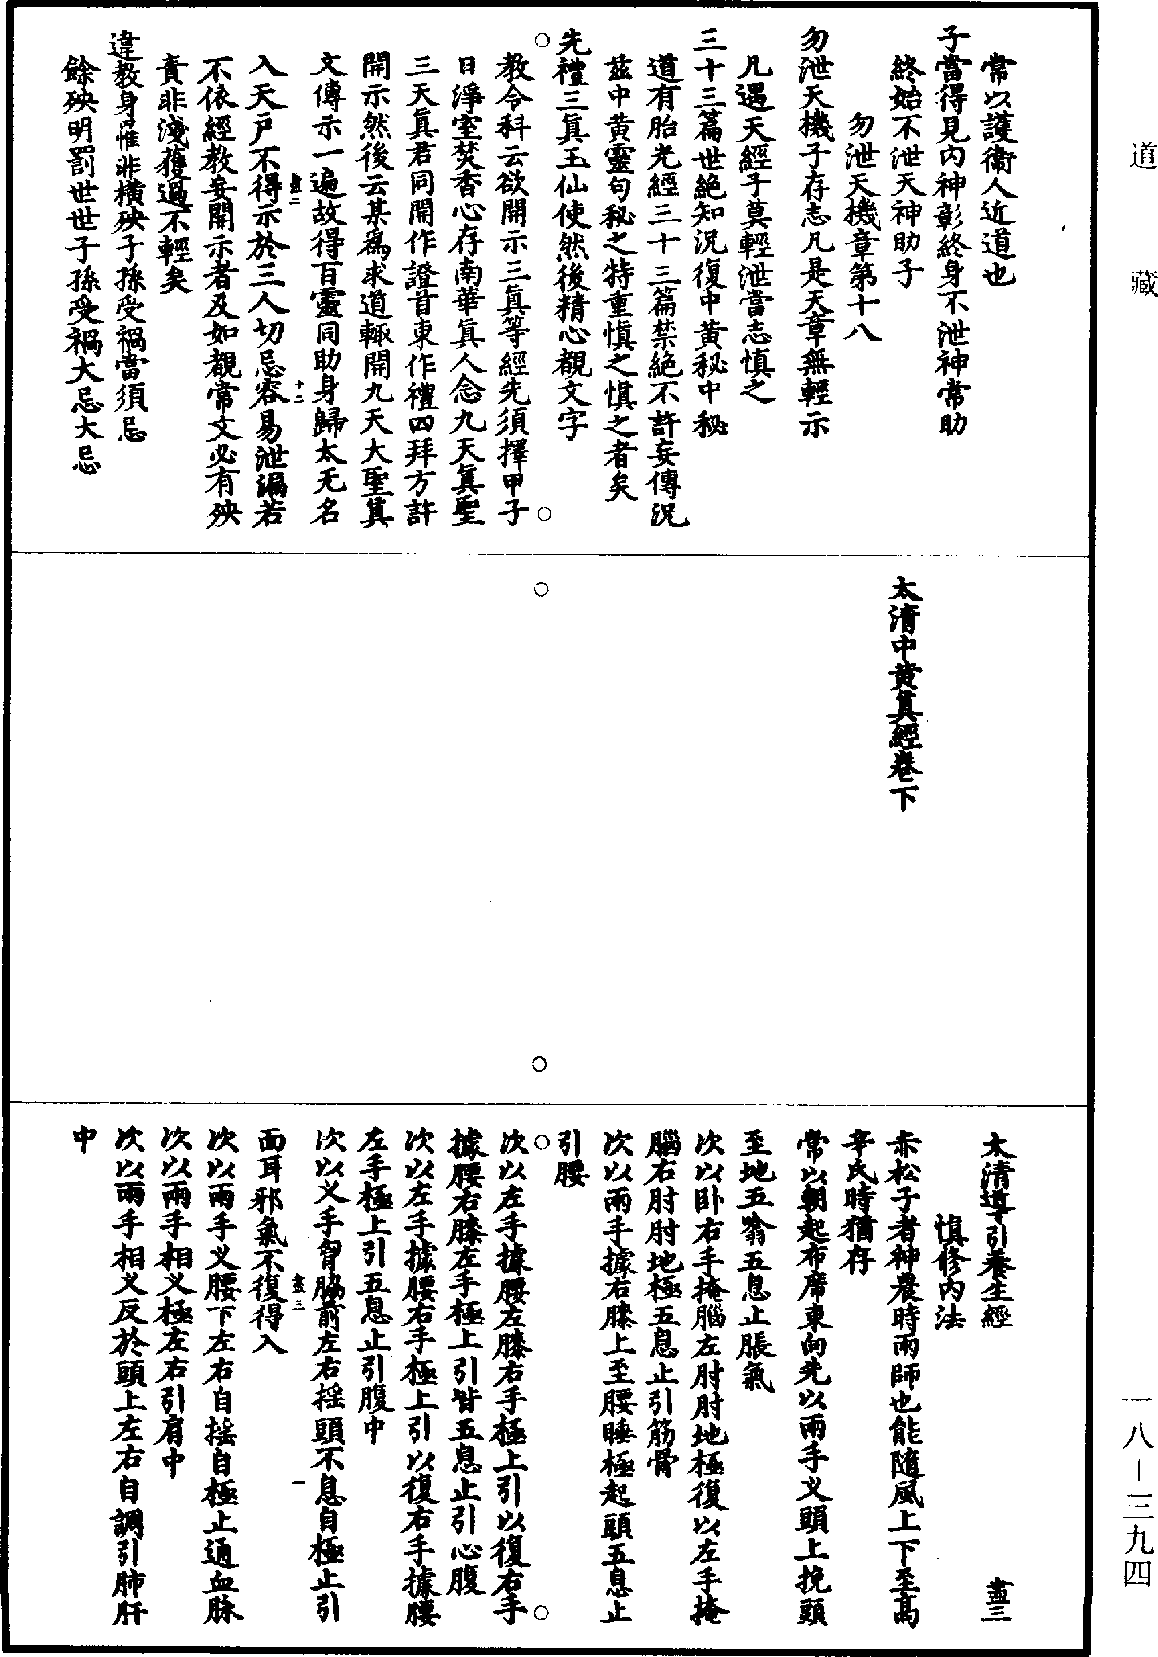 道藏
常以護衛人近道也
子當得見內神彰終身不泄神常助
終始不泄天神助子
勿泄天機章第十八
勿泄天機子存志凡是天章無輕示
凡遇天經子莫輕泄當志慎之
三十三篇世絕知況復中黃秘中秘
道有胎光經三十三篇禁絕不許妄傳況
茲中黃靈句秘之特重慎之慎之者矣
先禮三真玉仙使然後精心覩文字
教令科云欲開示三真等經先須擇甲子
日淨室焚香心存南華真人念九天真聖
三天真君同開作證首東作禮四拜方許
開示然後云某爲求道輒開九天大聖真
文傳示一遍故得百靈同助身歸太无名
入天戸不得示於三人切忌容易泄漏若
盡二
十二
不依經教妄開示者及如覩常文必有殃
責非淺獲過不輕矣
違教身罹非橫殃子孫受禍當須忌
餘殃明罰世世子孫受禍大忌大忌
太清中黃真經卷下
太清導引養生經
盡三
慎修內法
赤松子者神農時雨師也能隨風上下至高
辛氏時猶存
常以朝起布席東向先以兩手叉頭上挽頭
至地五噏五息止脹氣
次以卧右手掩腦左肘肘地極復以左手掩
腦右肘肘地極五息止引筋骨
次以兩手據右膝上至腰睡極起頭五息止
引腰
次以左手據腰左膝右手極上引以復右手
據腰右膝左手極上引皆五息止引心腹
次以左手據腰右手極上引以復右手據腰
左手極上引五息止引腹中
次以叉手胷脇前左右摇頭不息自極止引
盡三
一
面耳邪氣不復得入
次以兩手叉腰下左右自摇自極止通血脉
次以兩手相叉極左右引肩中
次以兩手相叉反於頭上左右自調引肺肝
中
一八—三九四